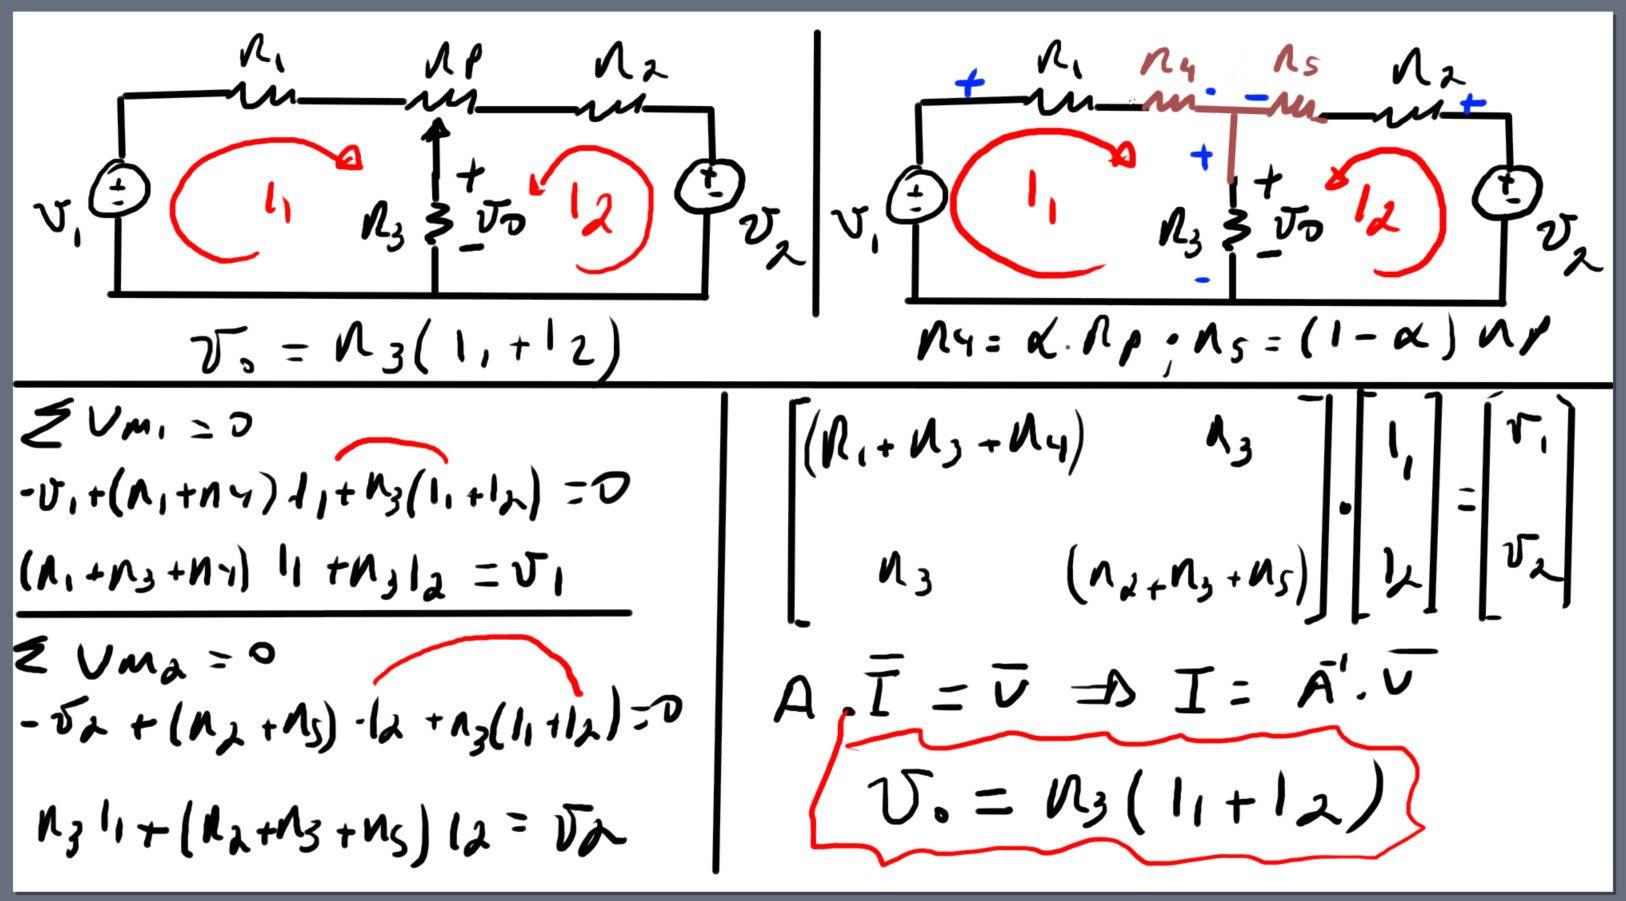 R1 RP R2
V1 + - I1 R3 + V0 - I2 + - V2
V0 = R3(I1+I2)
+ R1 R4 - - R5 R2 +
V1 + - I1 + R3 + V0 - - I2 + - V2
R4= α.RP ; R5=(1-α) RP
ΣVM1=0
-V1+(R1+R4).I1+R3(I1+I2)=0
(R1+R3+R4) I1+R3I2=V1
ΣVM2=0
-V2+(R2+R5).I2+R3(I1+I2)=0
R3I1+(R2+R3+R5)I2=V2
[(R1+R3+R4) R3] . [I1] = [V1]
[R3 (R2+R3+R5)] [I2] [V2]
A.I̅ = V̅ ⇒ I = A⁻¹.V̅
V0 = R3(I1+I2)